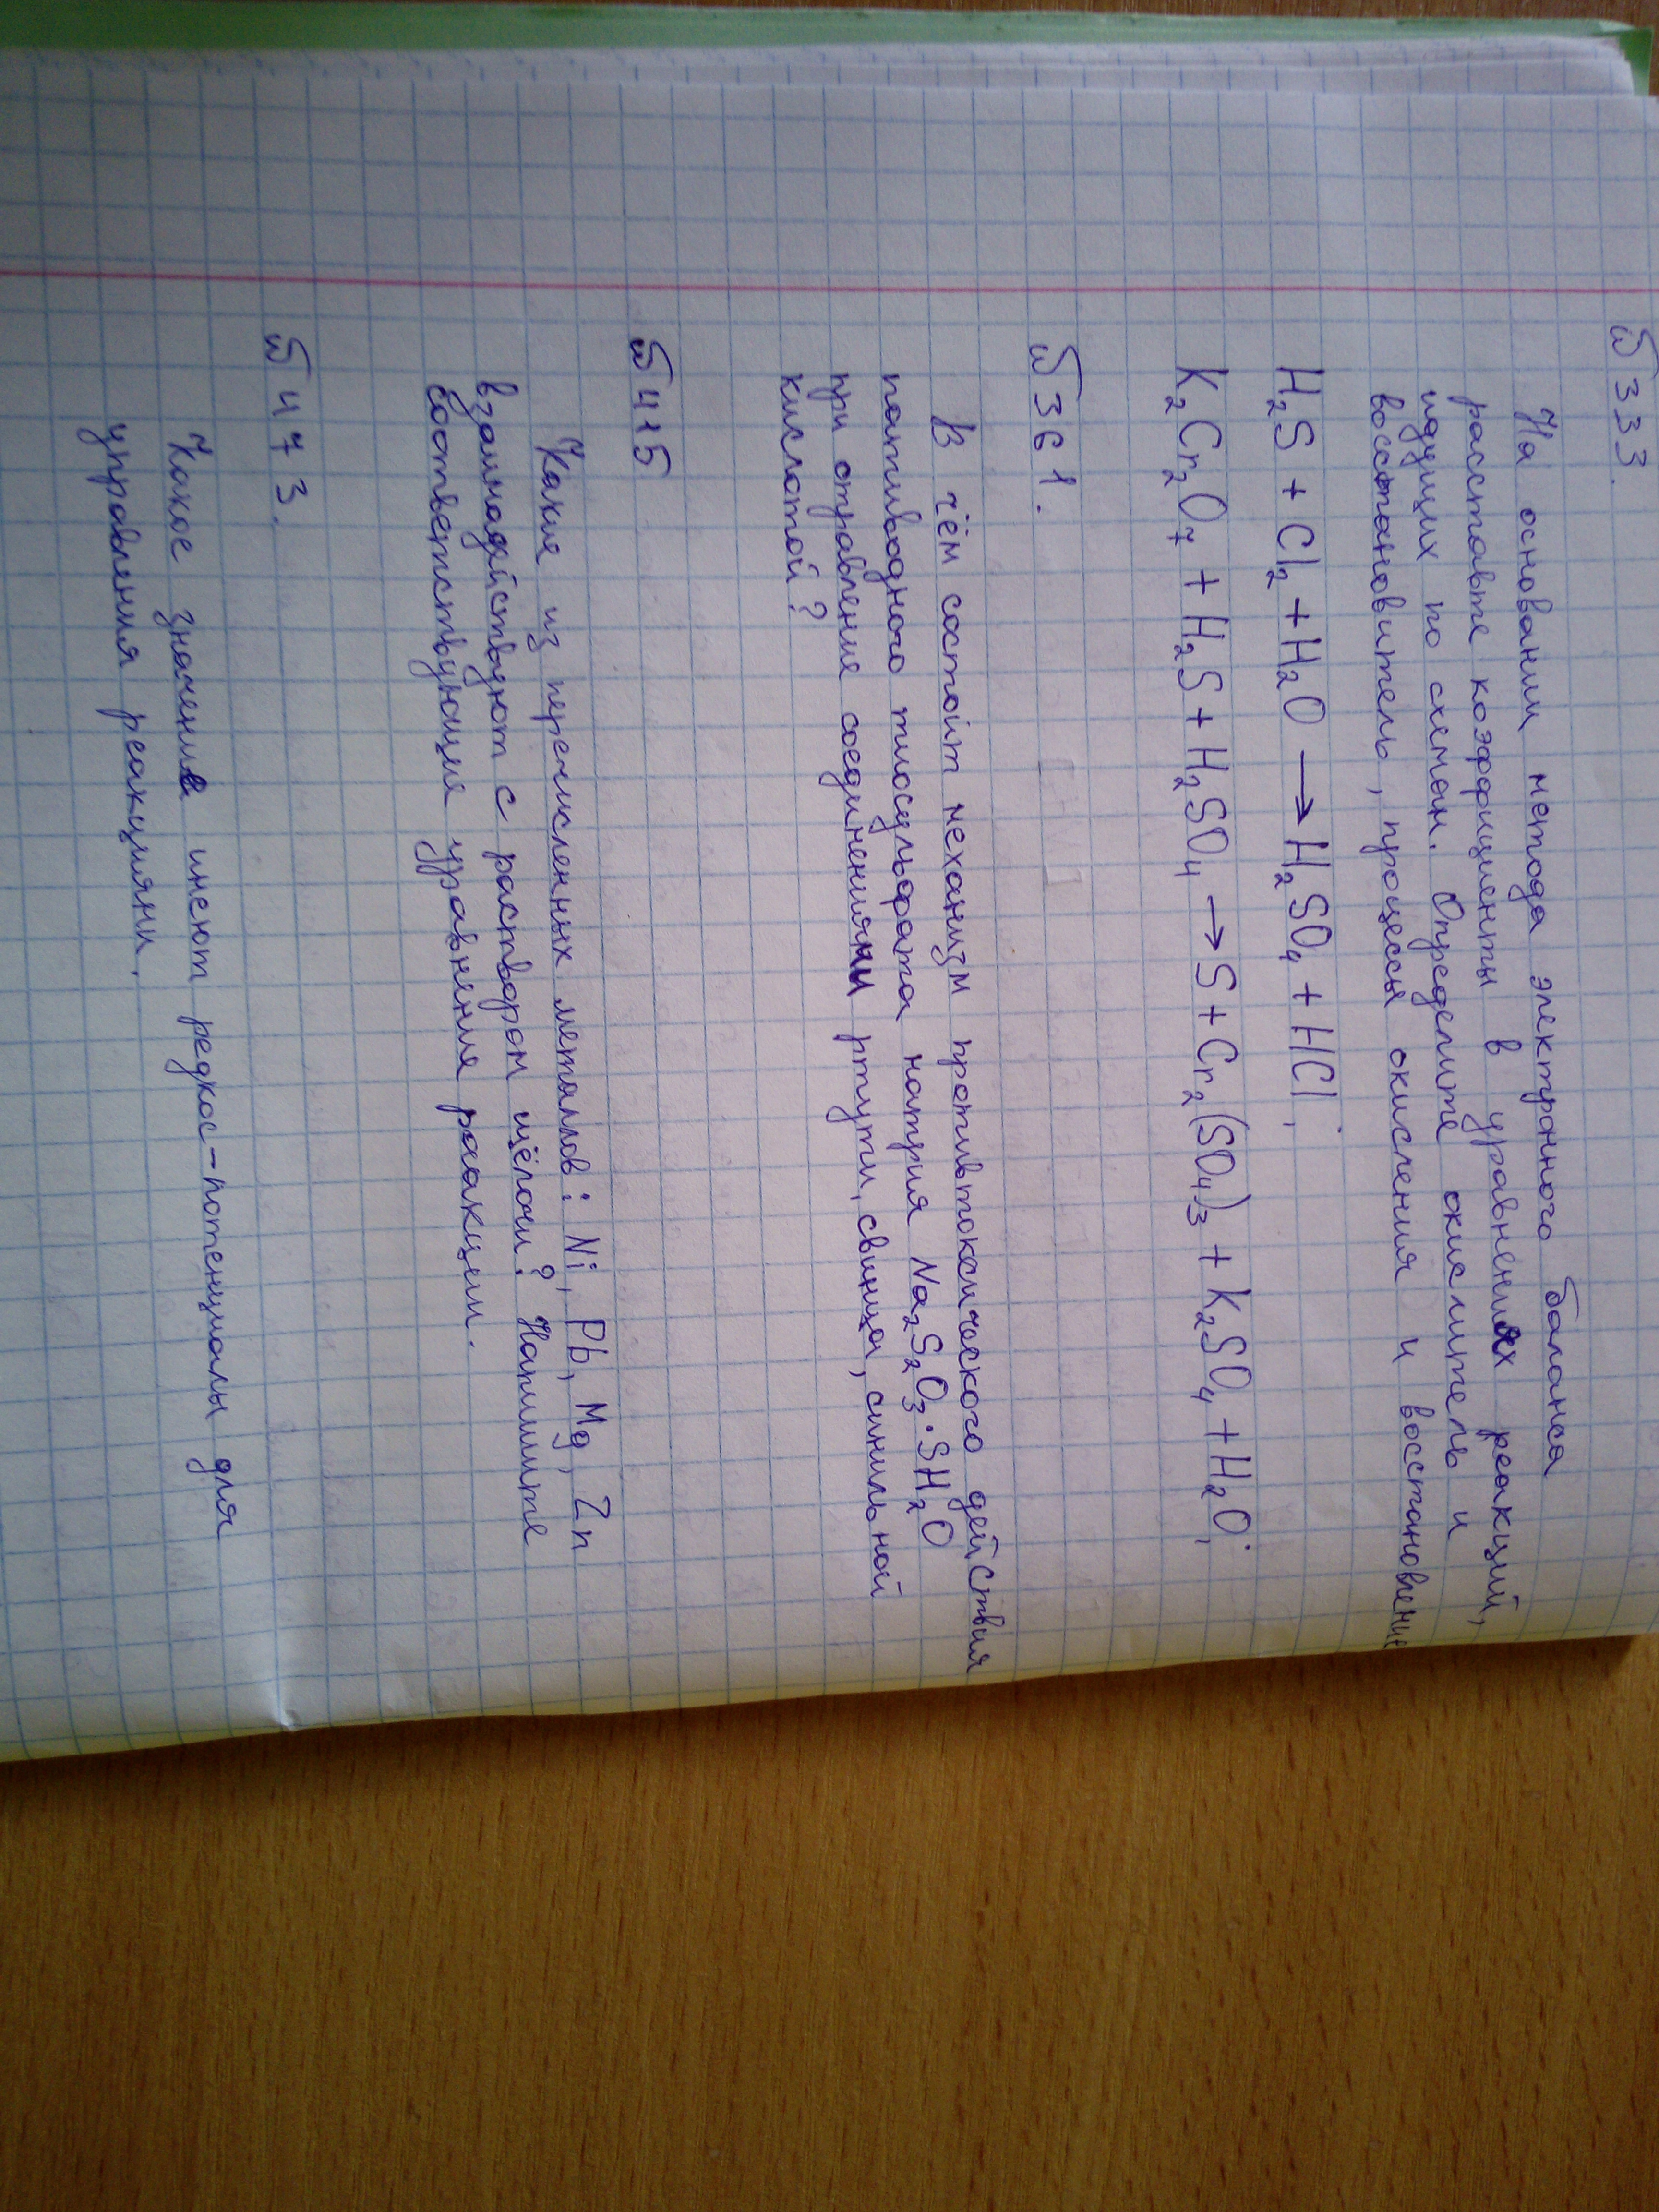 № 333.
На основании метода электронного баланса
расставьте коэффициенты в уравнениях реакций,
идущих по схемам. Определите окислитель и
восстановитель, процессы окисления и восстановление
H₂S + Cl₂ + H₂O → H₂SO₄ + HCl;
K₂Cr₂O₇ + H₂S + H₂SO₄ → S + Cr₂(SO₄)₃ + K₂SO₄ + H₂O;
№ 361.
В чём состоит механизм противтоксического действия
пятиводного тиосульфата натрия Na₂S₂O₃·SH₂O
при отравление соединениями ртути, свинца, синильной
кислотой?
№ 415
Какие из перечисленных металлов: Ni, Pb, Mg, Zn
взаимодействуют с раствором щёлочи? Напишите
соответствующие уравнения реакции.
№ 473.
Какое значение имеют редкос-потенциалы для
управления реакциями.